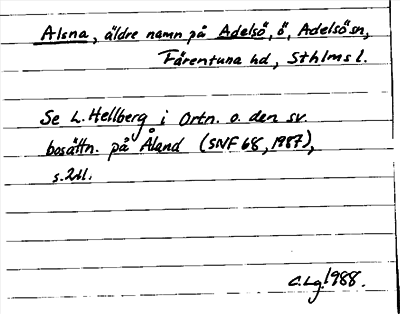 Alsna, äldre namn på Adelsö, ö, Adelsö sn,
Färentuna hd, Sthlms l.
Se L. Hellberg i Ortn. o. den sv.
bosättn. på Åland (SNF 68, 1987),
C.Lg. 1988.